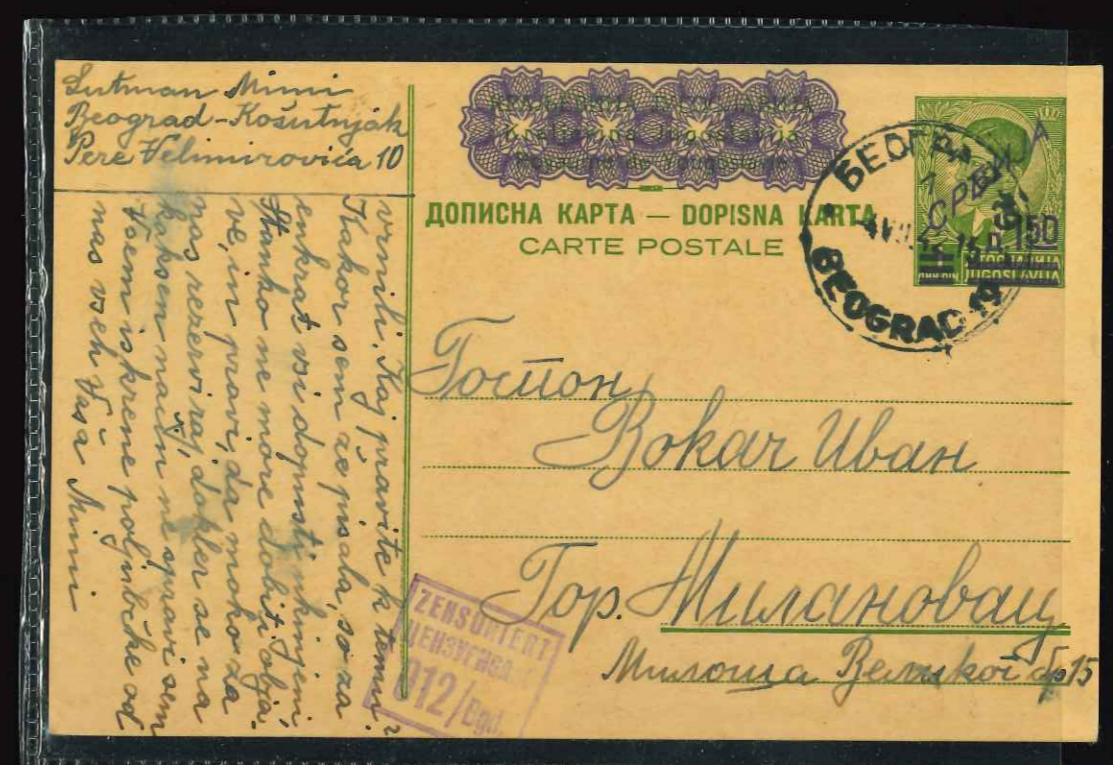 Sutman Mimi
Beograd-Košutnjak
Pere Velimirovića 10
vrnili. Kaj pravite k temu?
Kakor sem že pisala, so za
enkrat vsi dopusti ukinjeni,
Stanko ne more dobiti obja-
ve, in pravi, da mohor za
nas rezervira, dokler se na
kakšem način ne spravi sem
Vsem iskrene poljubčke od
nas vseh Vaša Mimi
Kraljevina Jugoslavija
Royaume de Yougoslavie
ДОПИСНА КАРТА — DOPISNA KARTA
CARTE POSTALE
БЕОГРАД 1
BEOGRAD 1
СРБИЈА
1.50
ЈУГОСЛАВИЈА
JUGOSLAVIJA
Госпон
Вокач Иван
Гор. Милановац
Милоша Великог бр 15
ZENSURIERT
912/Bgd.